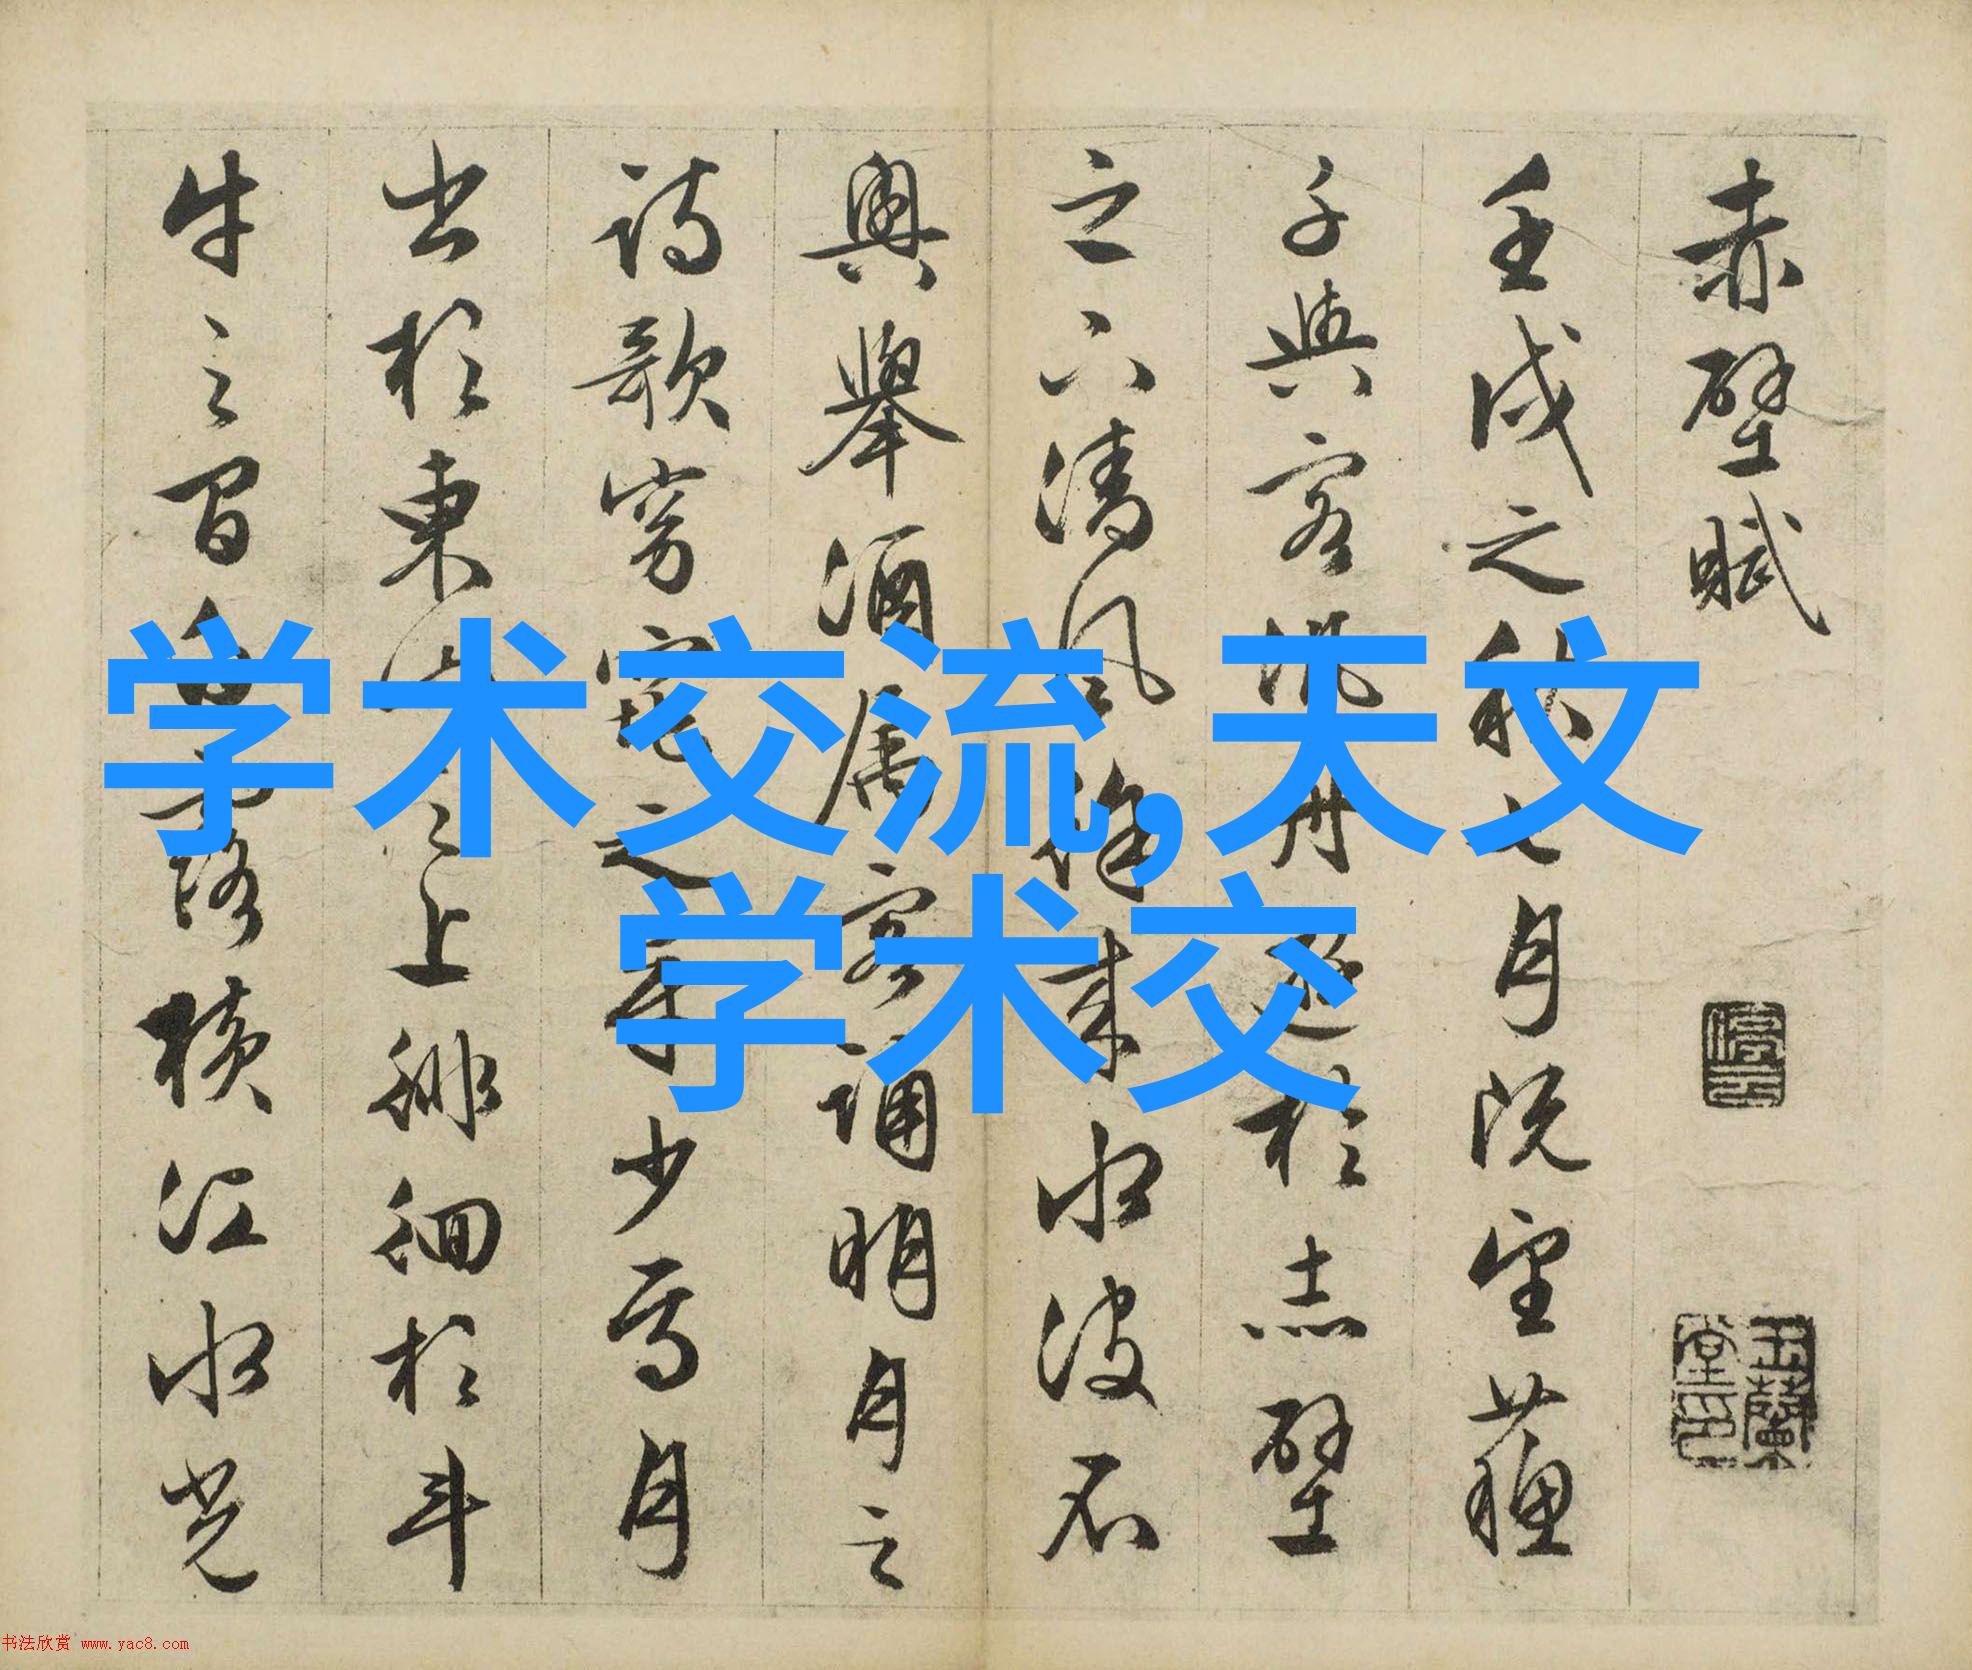 赤壁賦
壬戌之秋七月既望蘓
子與客泛舟遊於赤壁
之下清風徐来水波不
興舉酒属客誦明月之
詩歌窈窕之章少焉月
出於東山之上徘徊於斗
牛之間白露横江水光
停云
玉蘭堂印
学术交流,天文
学术交
书法欣赏 www.yac8.com